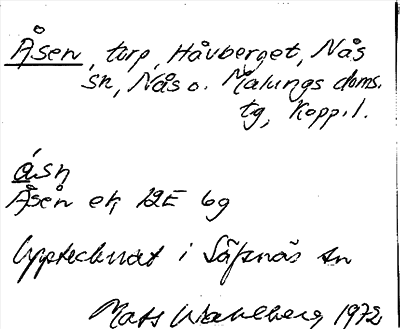 Åsen, torp, Håvberget, Nås
sn, Nås o. Malungs doms.
tg, Kopp. l.
åsṇ
Åsen ek 12E 6g
Upptecknat i Säfsnäs sn
Mats Wahlberg 1972